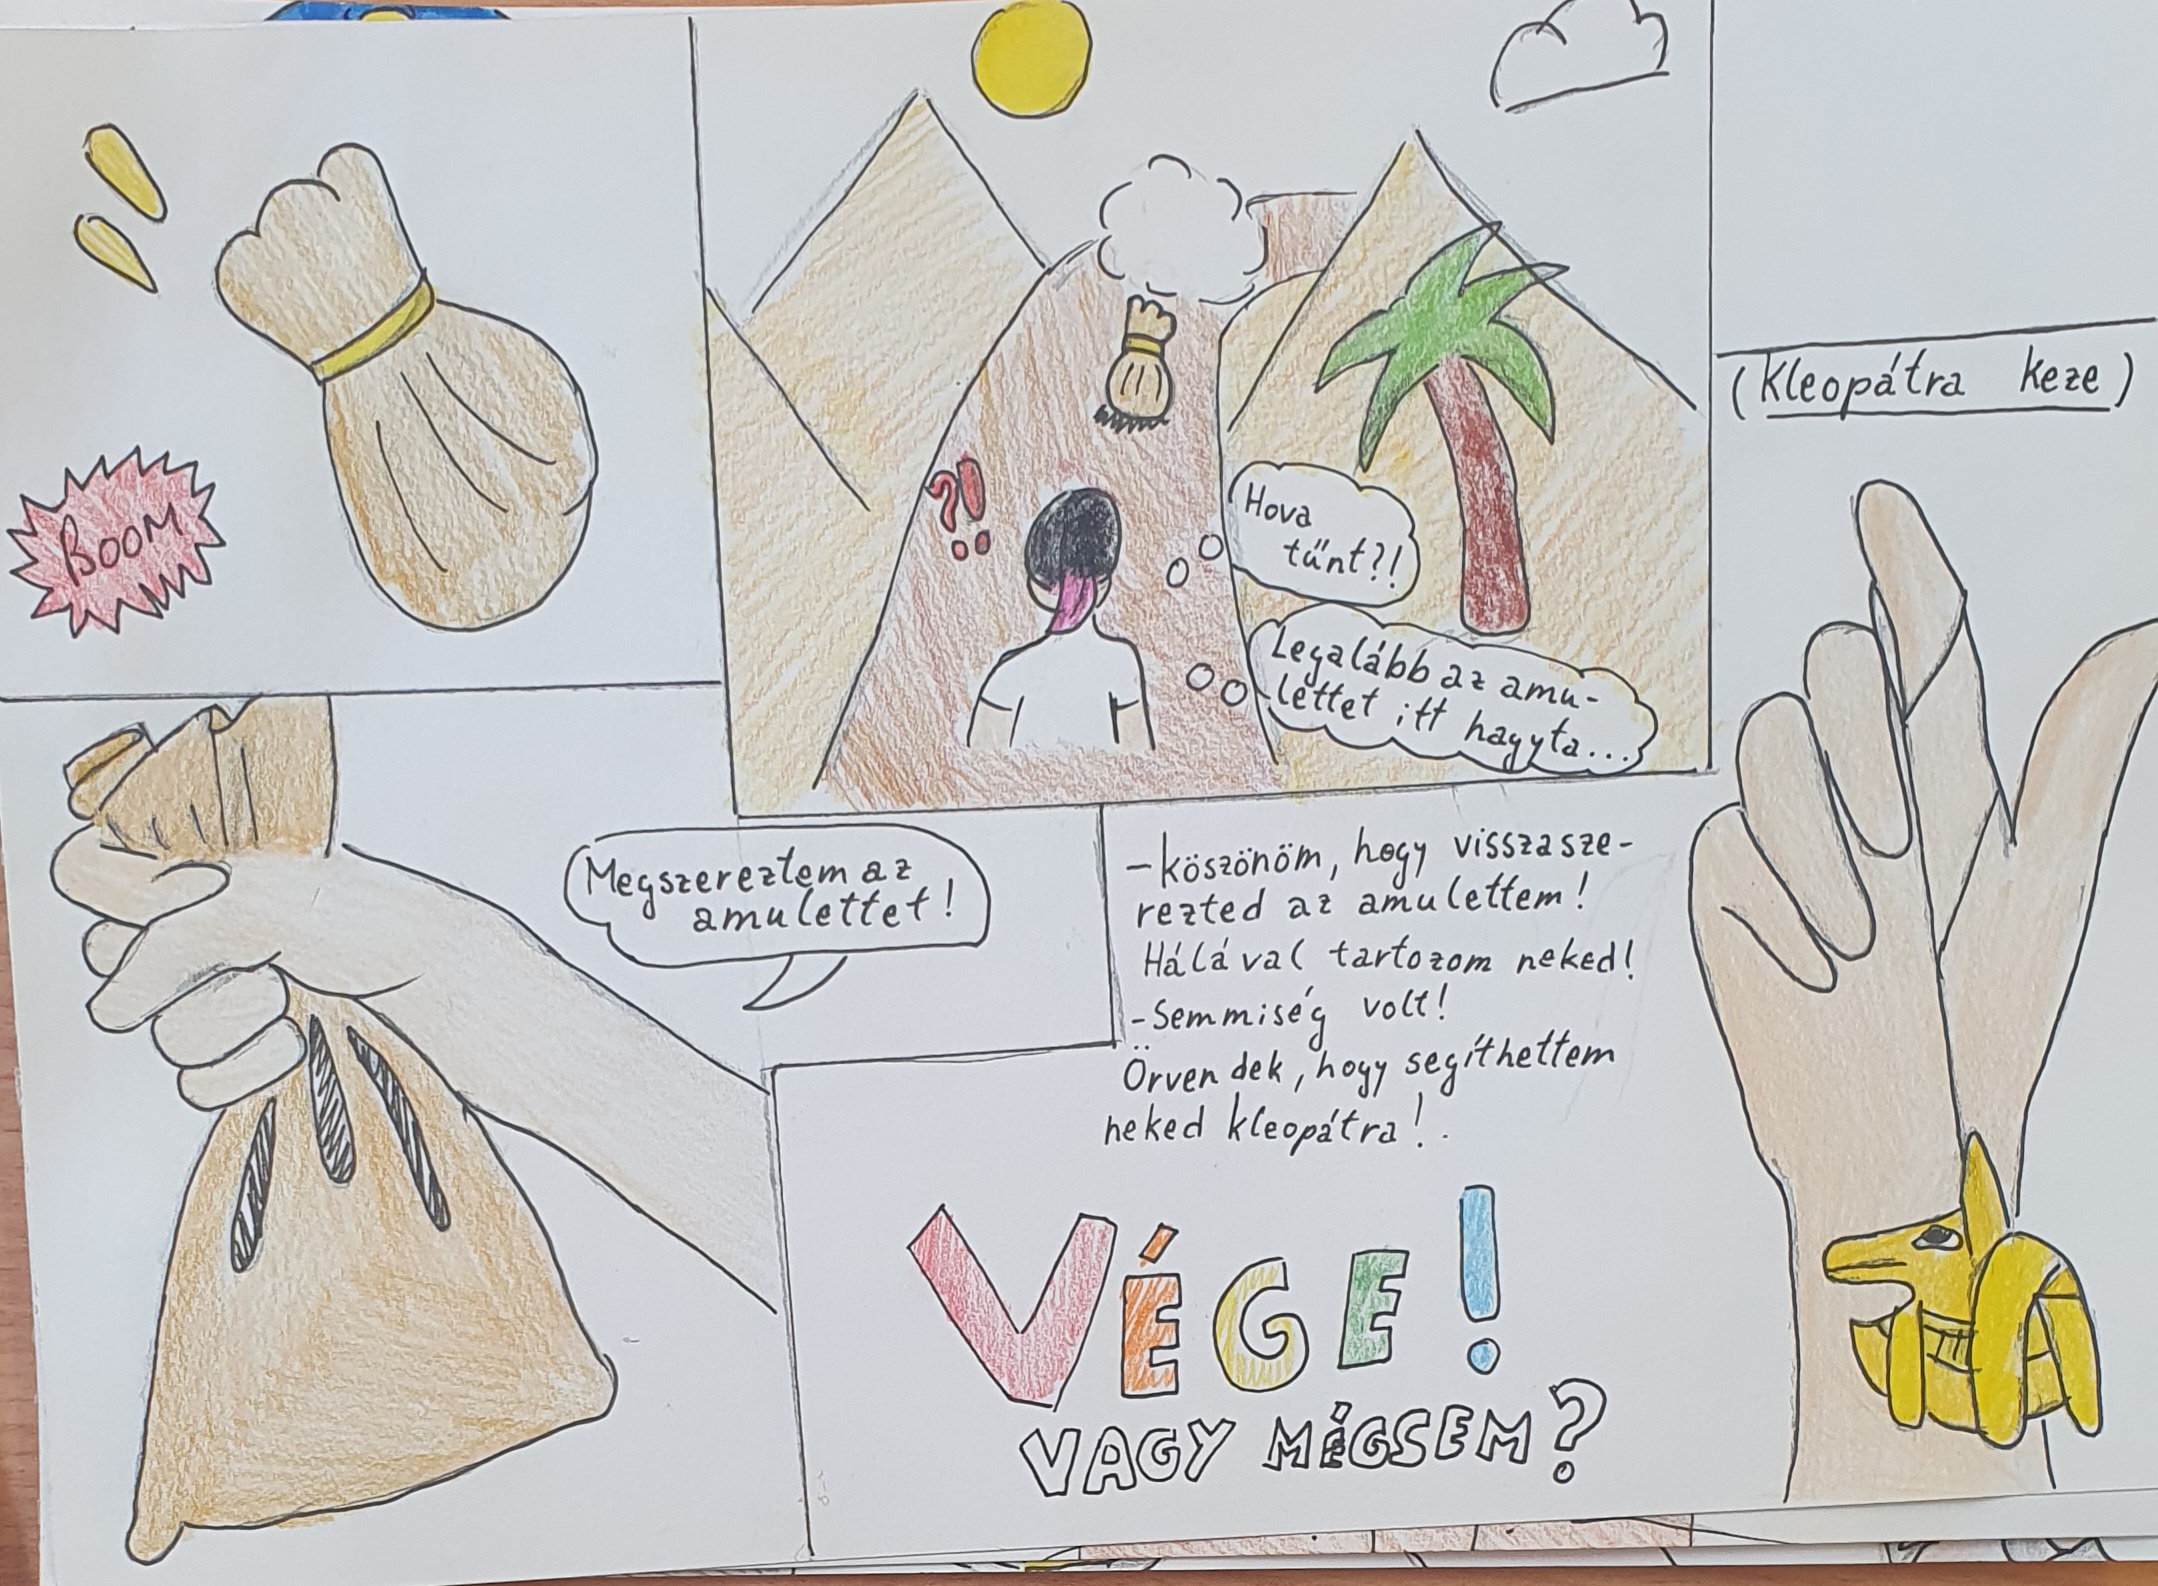 BOOM
?!
Hova
tűnt?!
Legalább az amu-
lettet itt hagyta...
(Kleopátra keze)
Megszereztem az
amulettet!
-köszönöm, hogy visszasze-
rezted az amulettem!
Hálával tartozom neked!
-Semmiség volt!
Örvendek, hogy segíthettem
neked kleopátra!.
VÉGE!
VAGY MÉGSEM?